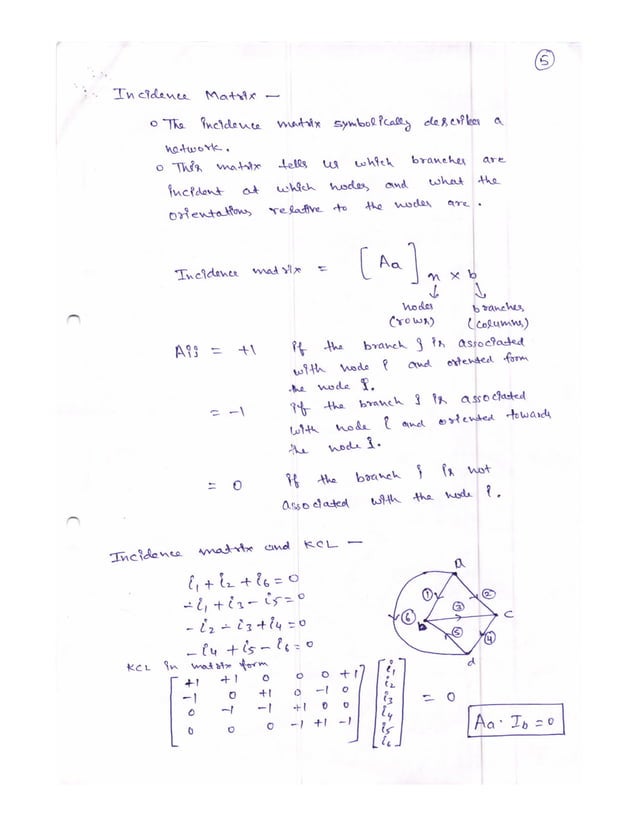 5
Incidence Matrix —
o The incidence matrix symbolically describes a
network.
o This matrix tells us which branches are
incident at which nodes and what the
orientations relative to the nodes are.
Incidence matrix = [Aa] n × b
↓ ↓
nodes branches
(rows) (columns)
Aij = +1 if the branch j is associated
with node i and oriented form
the node i.
= -1 if the branch j is associated
with node i and oriented towards
the node i.
= 0 if the branch j is not
associated with the node i.
Incidence matrix and KCL —
i1 + i2 + i6 = 0
- i1 + i3 - i5 = 0
- i2 - i3 + i4 = 0
- i4 + i5 - i6 = 0
a
1 2
3
b c
6 5 4
d
KCL in matrix form
+1 +1 0 0 0 +1 i1
-1 0 +1 0 -1 0 i2
0 -1 -1 +1 0 0 i3
0 0 0 -1 +1 -1 i4
i5
i6
= 0
Aa · Ib = 0